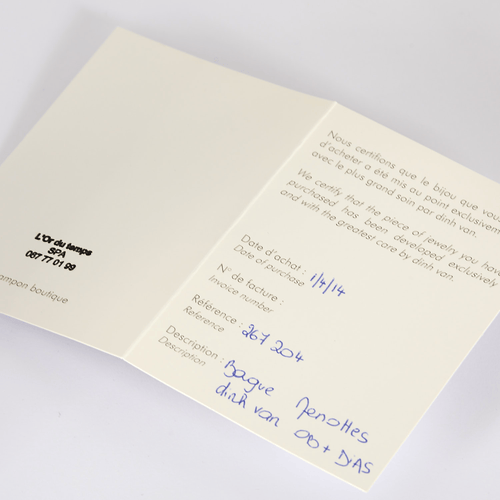 L'Or du temps
SPA
087 77 01 99
ampon boutique
Nous certifions que le bijou que vous
d'acheter a été mis au point exclusivem
avec le plus grand soin par dinh van.
We certify that the piece of jewelry you have
purchased has been developed exclusively
and with the greatest care by dinh van.
Date d'achat : 1/4/14
Date of purchase
N° de facture :
Invoice number
Référence : 267 204
Reference
Description : Bague Menottes
Description dinh van OB + DiAS